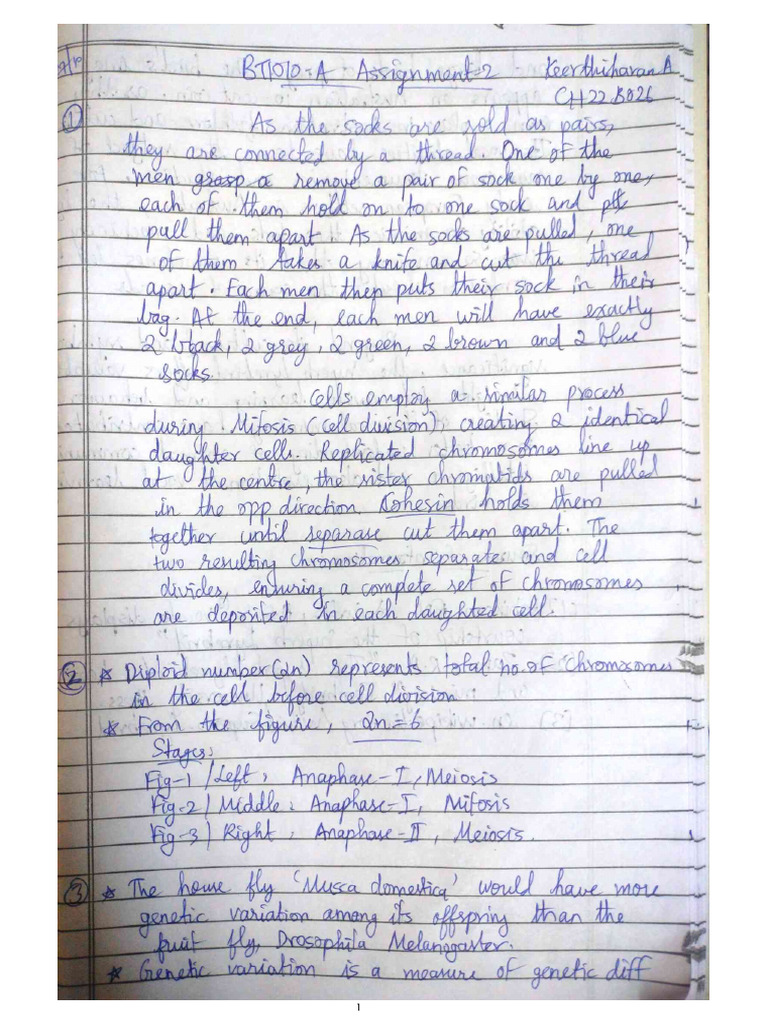 BT1010-A Assignment-2 Keerthiharan A
CH22B026
① As the socks are sold as pairs,
they are connected by a thread. One of the
men grasp a remove a pair of sock one by one,
each of them hold on to one sock and
pull them apart. As the socks are pulled, one
of them takes a knife and cut the thread
apart. Each men then puts their sock in their
bag. At the end, each men will have exactly
2 black, 2 grey, 2 green, 2 brown and 2 blue
socks.
Cells employ a similar process
during Mitosis (cell division) creating 2 identical
daughter cells. Replicated chromosomes line up
at the centre, the sister chromatids are pulled
in the opp direction. Cohesin holds them
together until separase cut them apart. The
two resulting chromosomes separate and cell
divides, ensuring a complete set of chromosomes
are deposited in each daughted cell.
② * Diploid number (2n) represents total no. of chromosomes
in the cell before cell division
* From the figure, 2n=6
Stages:
Fig-1 / Left: Anaphase-I, Meiosis
Fig-2 / Middle: Anaphase-I, Mitosis
Fig-3 / Right: Anaphase-II, Meiosis.
③ * The house fly 'Musca domestica' would have more
genetic variation among its offspring than the
fruit fly, Drosophila Melanogaster.
* Genetic variation is a measure of genetic diff
1